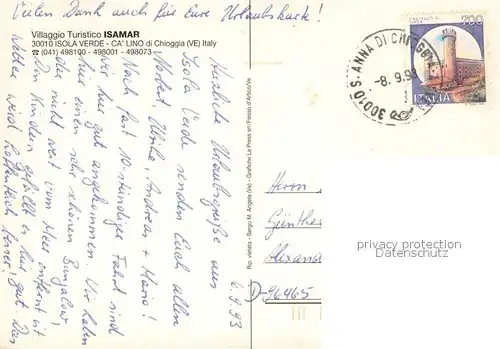 Vielen Dank auch für Eure Urlaubskarte!
Villaggio Turistico ISAMAR
30010 ISOLA VERDE - CA' LINO di Chioggia (VE) Italy
☎ (041) 498100 - 498001 - 498073
6.9.93
Herzliche Urlaubsgrüße aus
Isola Verde senden Euch allen
Norbert, Ulrike, Andreas + Mario!
Nach fast 10-stündiger Fahrt sind
wir hier gut angekommen. Wir haben
hier einen sehr schönen Bungalow,
der nicht weit vom Meer entfernt ist.
Den Kindern gefällt es hier gut. Das
Wetter wird hoffentlich besser!
Rip. vietata - Bergo M. Angela (Ve) - Grafiche La Press srl
700
ITALIA
30010 S. ANNA DI CHIOGGIA
-8.9.93
Herrn
Günther
D-96465
picturesvonfrueher
copyright